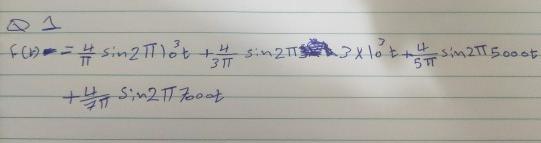 Q 1
f(t) = 4/π sin2π10³t + 4/3π sin2π 3×10³t + 4/5π sin2π5000t
+ 4/7π sin2π7000t